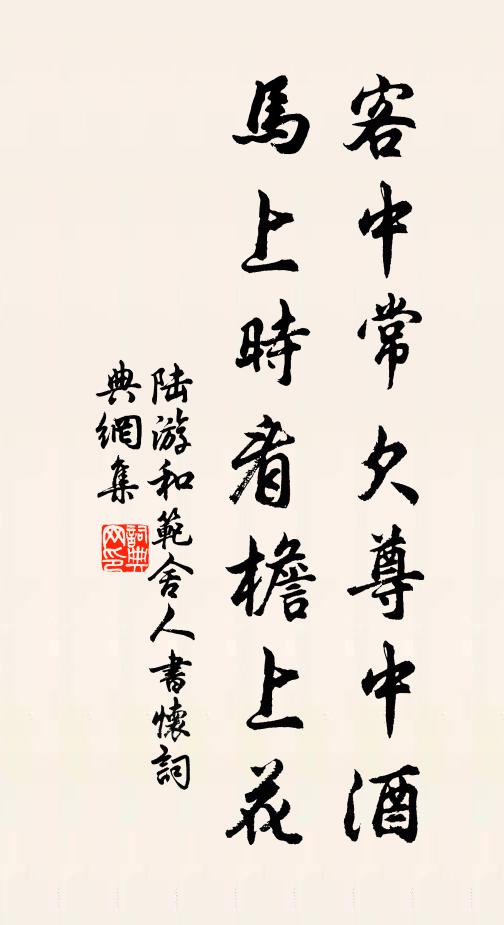 客中常欠尊中酒
馬上時看檐上花
陸游和範舍人書懷詞
典網集
詞典
网印